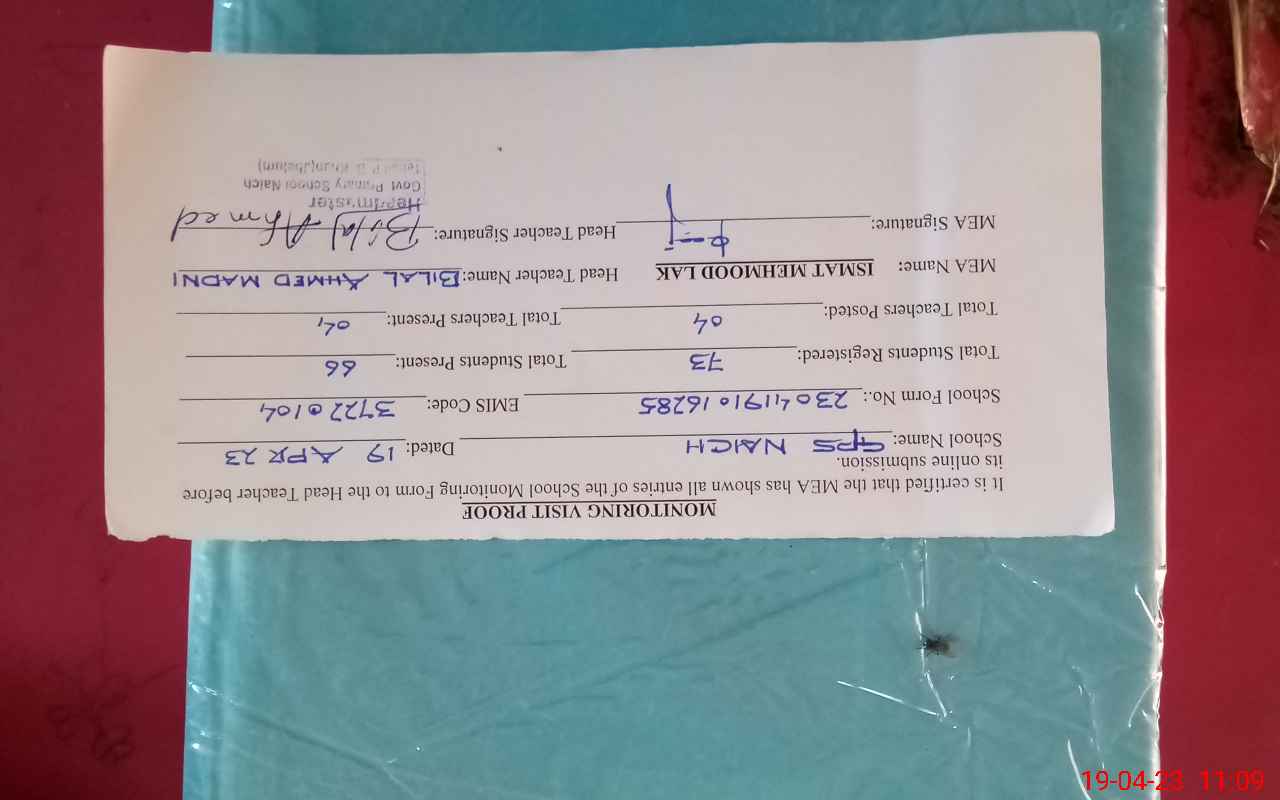 MONITORING VISIT PROOF
It is certified that the MEA has shown all entries of the School Monitoring Form to the Head Teacher before
its online submission.
School Name: GPS NAICH Dated: 19 APR 23
School Form No.: 23041191016285 EMIS Code: 37220104
Total Students Registered: 73 Total Students Present: 66
Total Teachers Posted: 04 Total Teachers Present: 04
MEA Name: ISMAT MEHMOOD LAK Head Teacher Name: BILAL AHMED MADNI
MEA Signature: Head Teacher Signature: Bilal Ahmed
Headmaster
Govt Primary School Naich
Tehsil P.D. Khan(Jhelum)
19-04-23 11:09